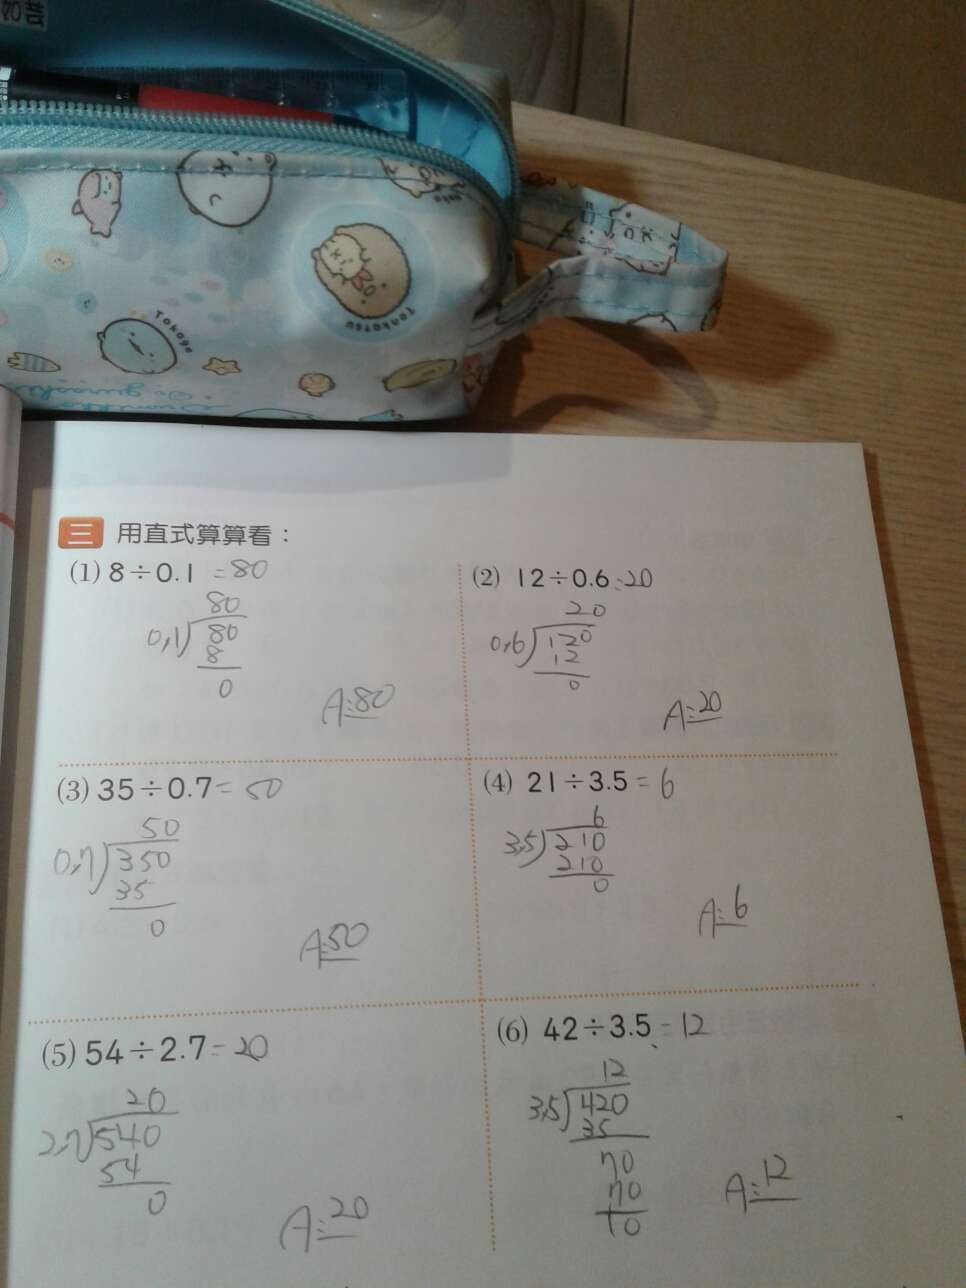 Tonkatsu
Tokage
三 用直式算算看：
(1) 8÷0.1 =80
80
0,1)80
8
0
A:80
(2) 12÷0.6=20
20
0,6)120
12
0
A:20
(3) 35÷0.7=50
50
0,7)350
35
0
A:50
(4) 21÷3.5=6
6
3,5)210
210
0
A:6
(5) 54÷2.7=20
20
2,7)540
54
0
A:20
(6) 42÷3.5=12
12
3,5)420
35
70
70
0
A:12